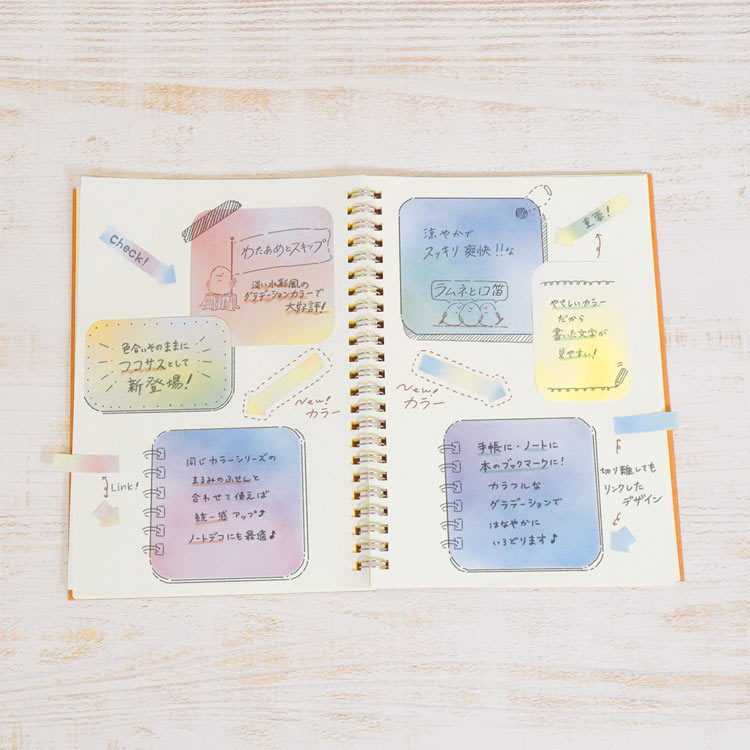 Check!
わたあめとスキップ
淡い水彩風の
グラデーションカラーで
大好評!
色合いそのままに
ココサスとして
新登場!
New!
カラー
同じカラーシリーズの
まるみのふせんと
合わせて使えば
統一感アップ♪
ノートデコにも最適♪
Link!
涼やかで
スッキリ爽快!!な
ラムネと口笛
重要!
やさしいカラー
だから
書いた文字が
見やすい!
New!
カラー
手帳に・ノートに
本のブックマークに!
カラフルな
グラデーションで
はなやかに
いろどります♪
切り離しても
リンクした
デザイン